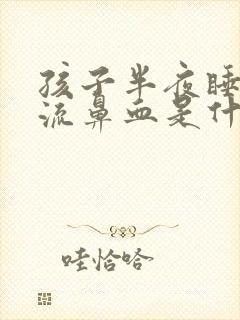 孩子半夜睡
流鼻血是什
哇恰哈